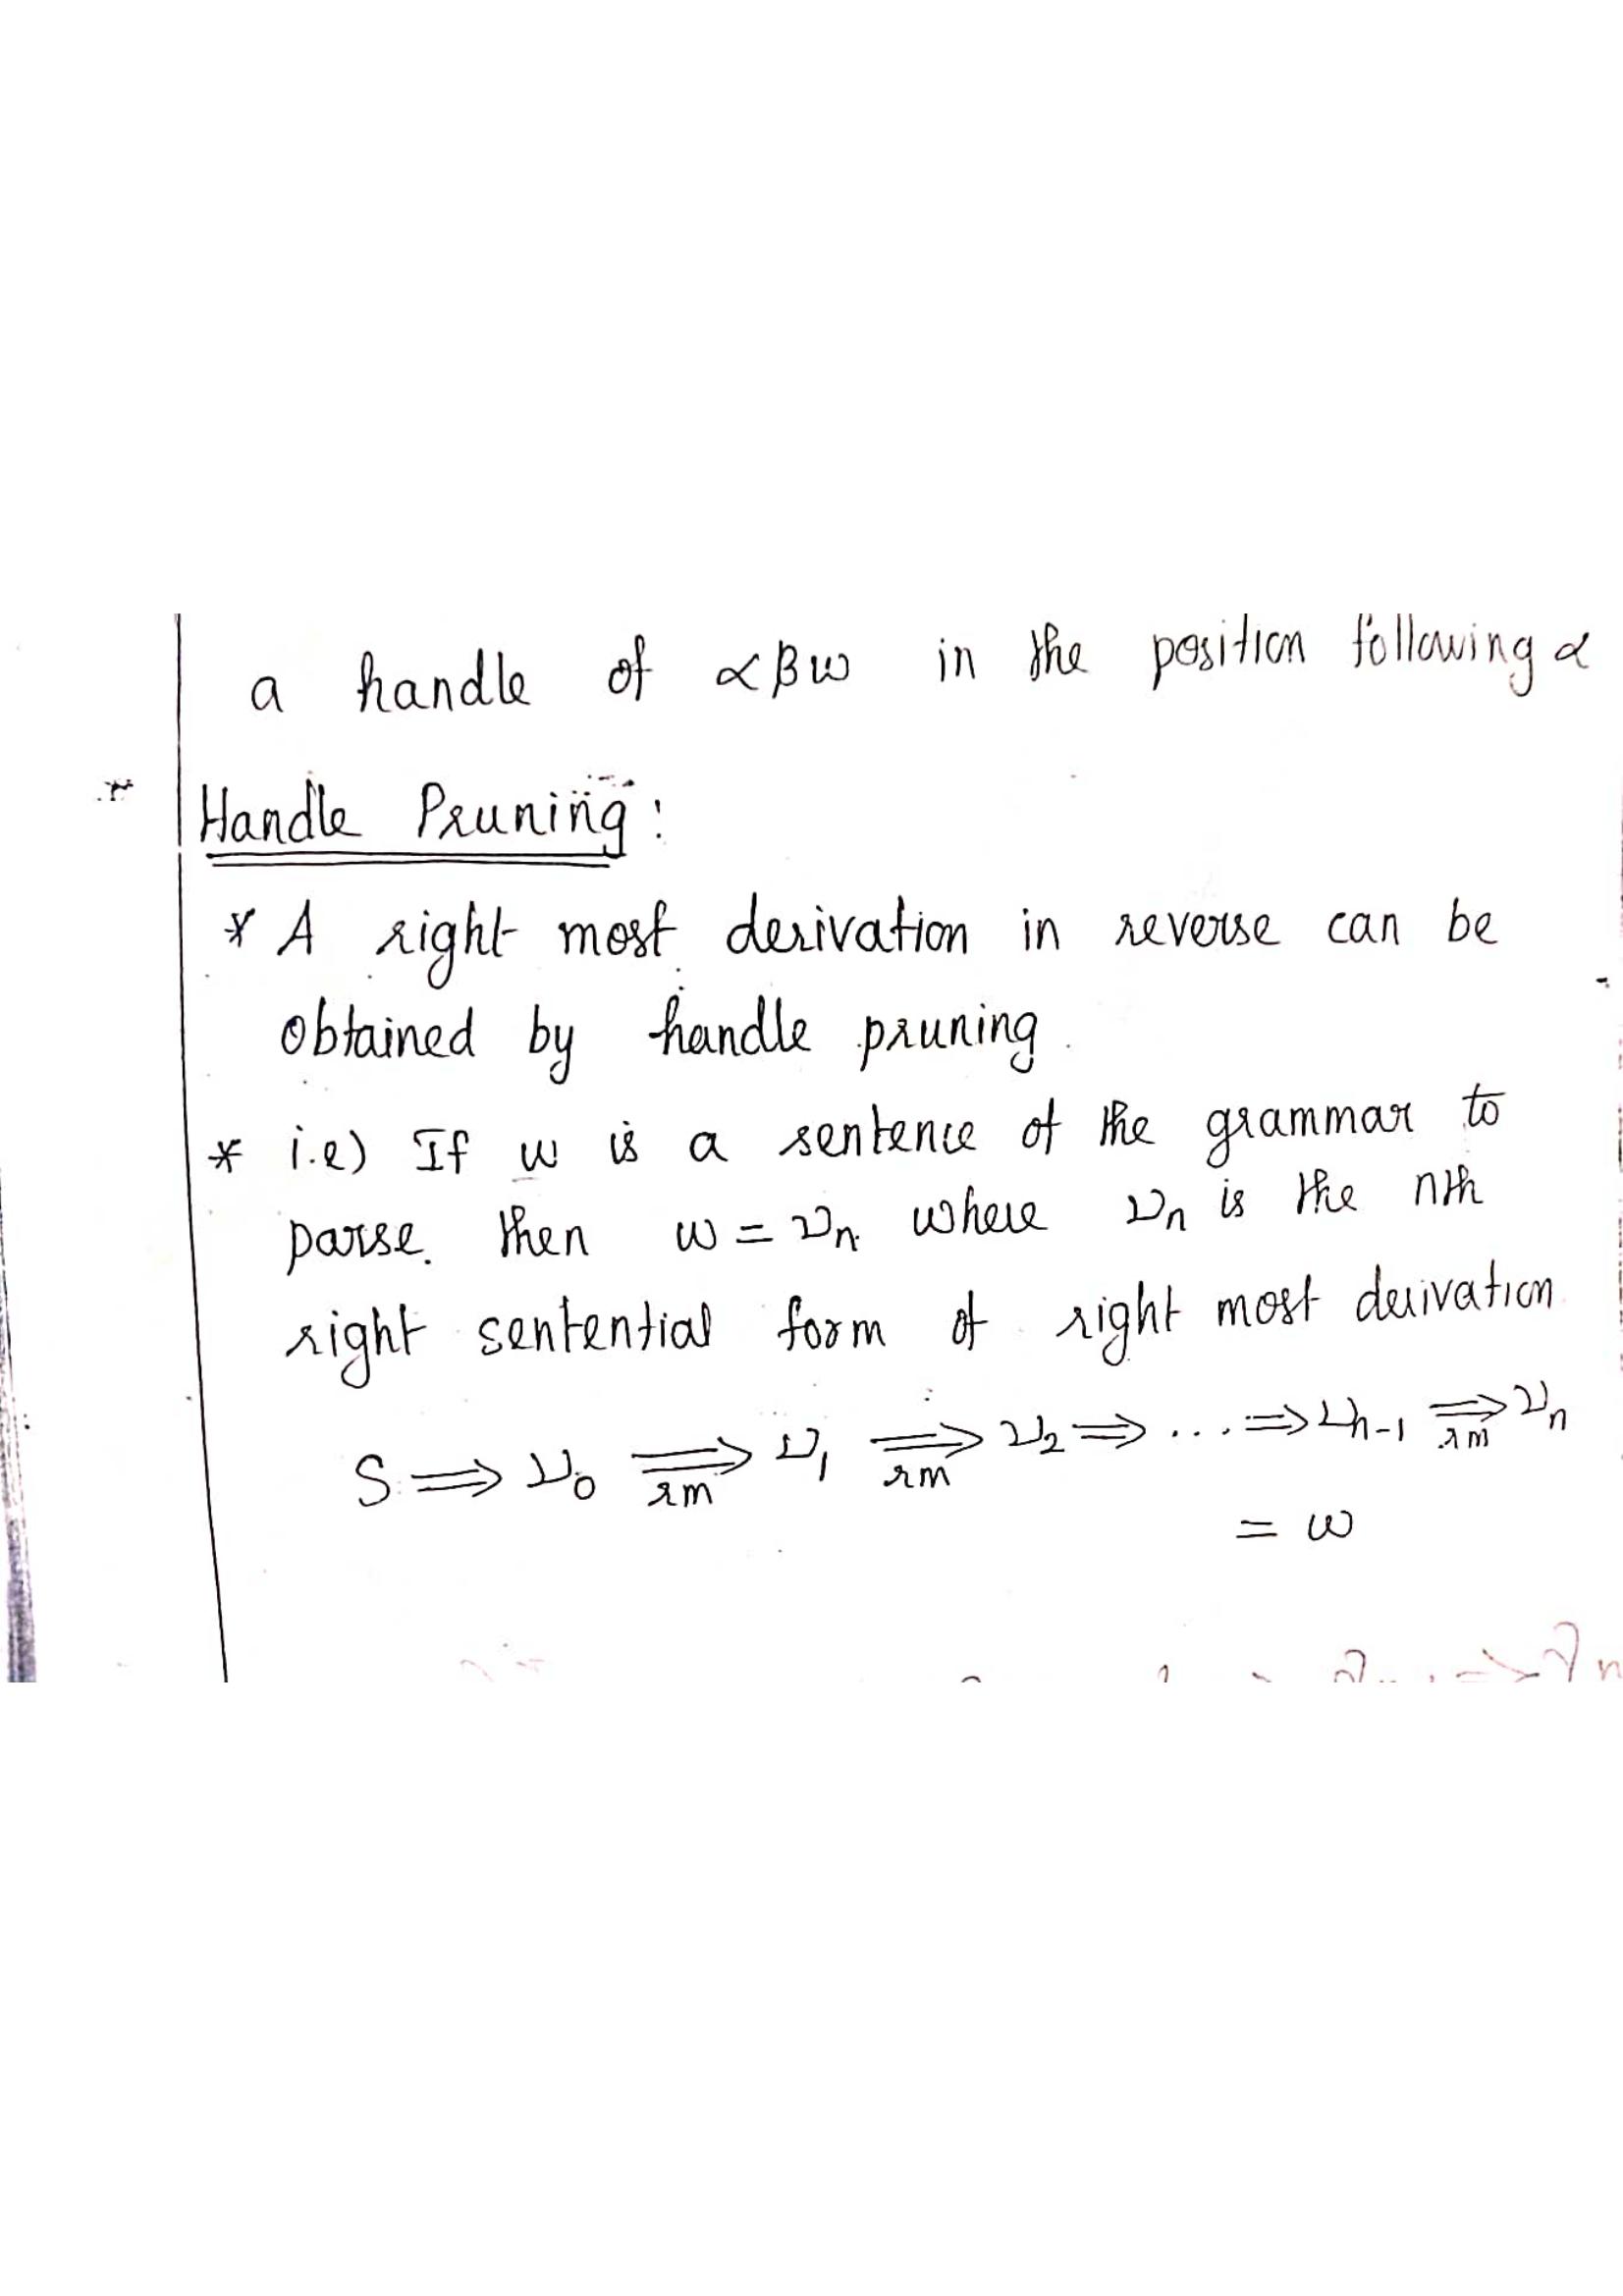 a handle of αβw in the position following α
Handle Pruning :
* A right most derivation in reverse can be
obtained by handle pruning.
* i.e) If w is a sentence of the grammar to
parse. then w = νn. where νn is the nth
right sentential form of right most derivation
S ⟹ ν0 ⟹rm ν1 ⟹rm ν2 ⟹ ... ⟹ νn-1 ⟹rm νn
= w